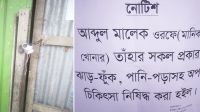 নোটিশ
আব্দুল মালেক ওরফে (মানিক
খোনার) তাঁহার সকল প্রকার
ঝাড়-ফুঁক, পানি-পড়াসহ অপ
চিকিৎসা নিষিদ্ধ করা হইল।